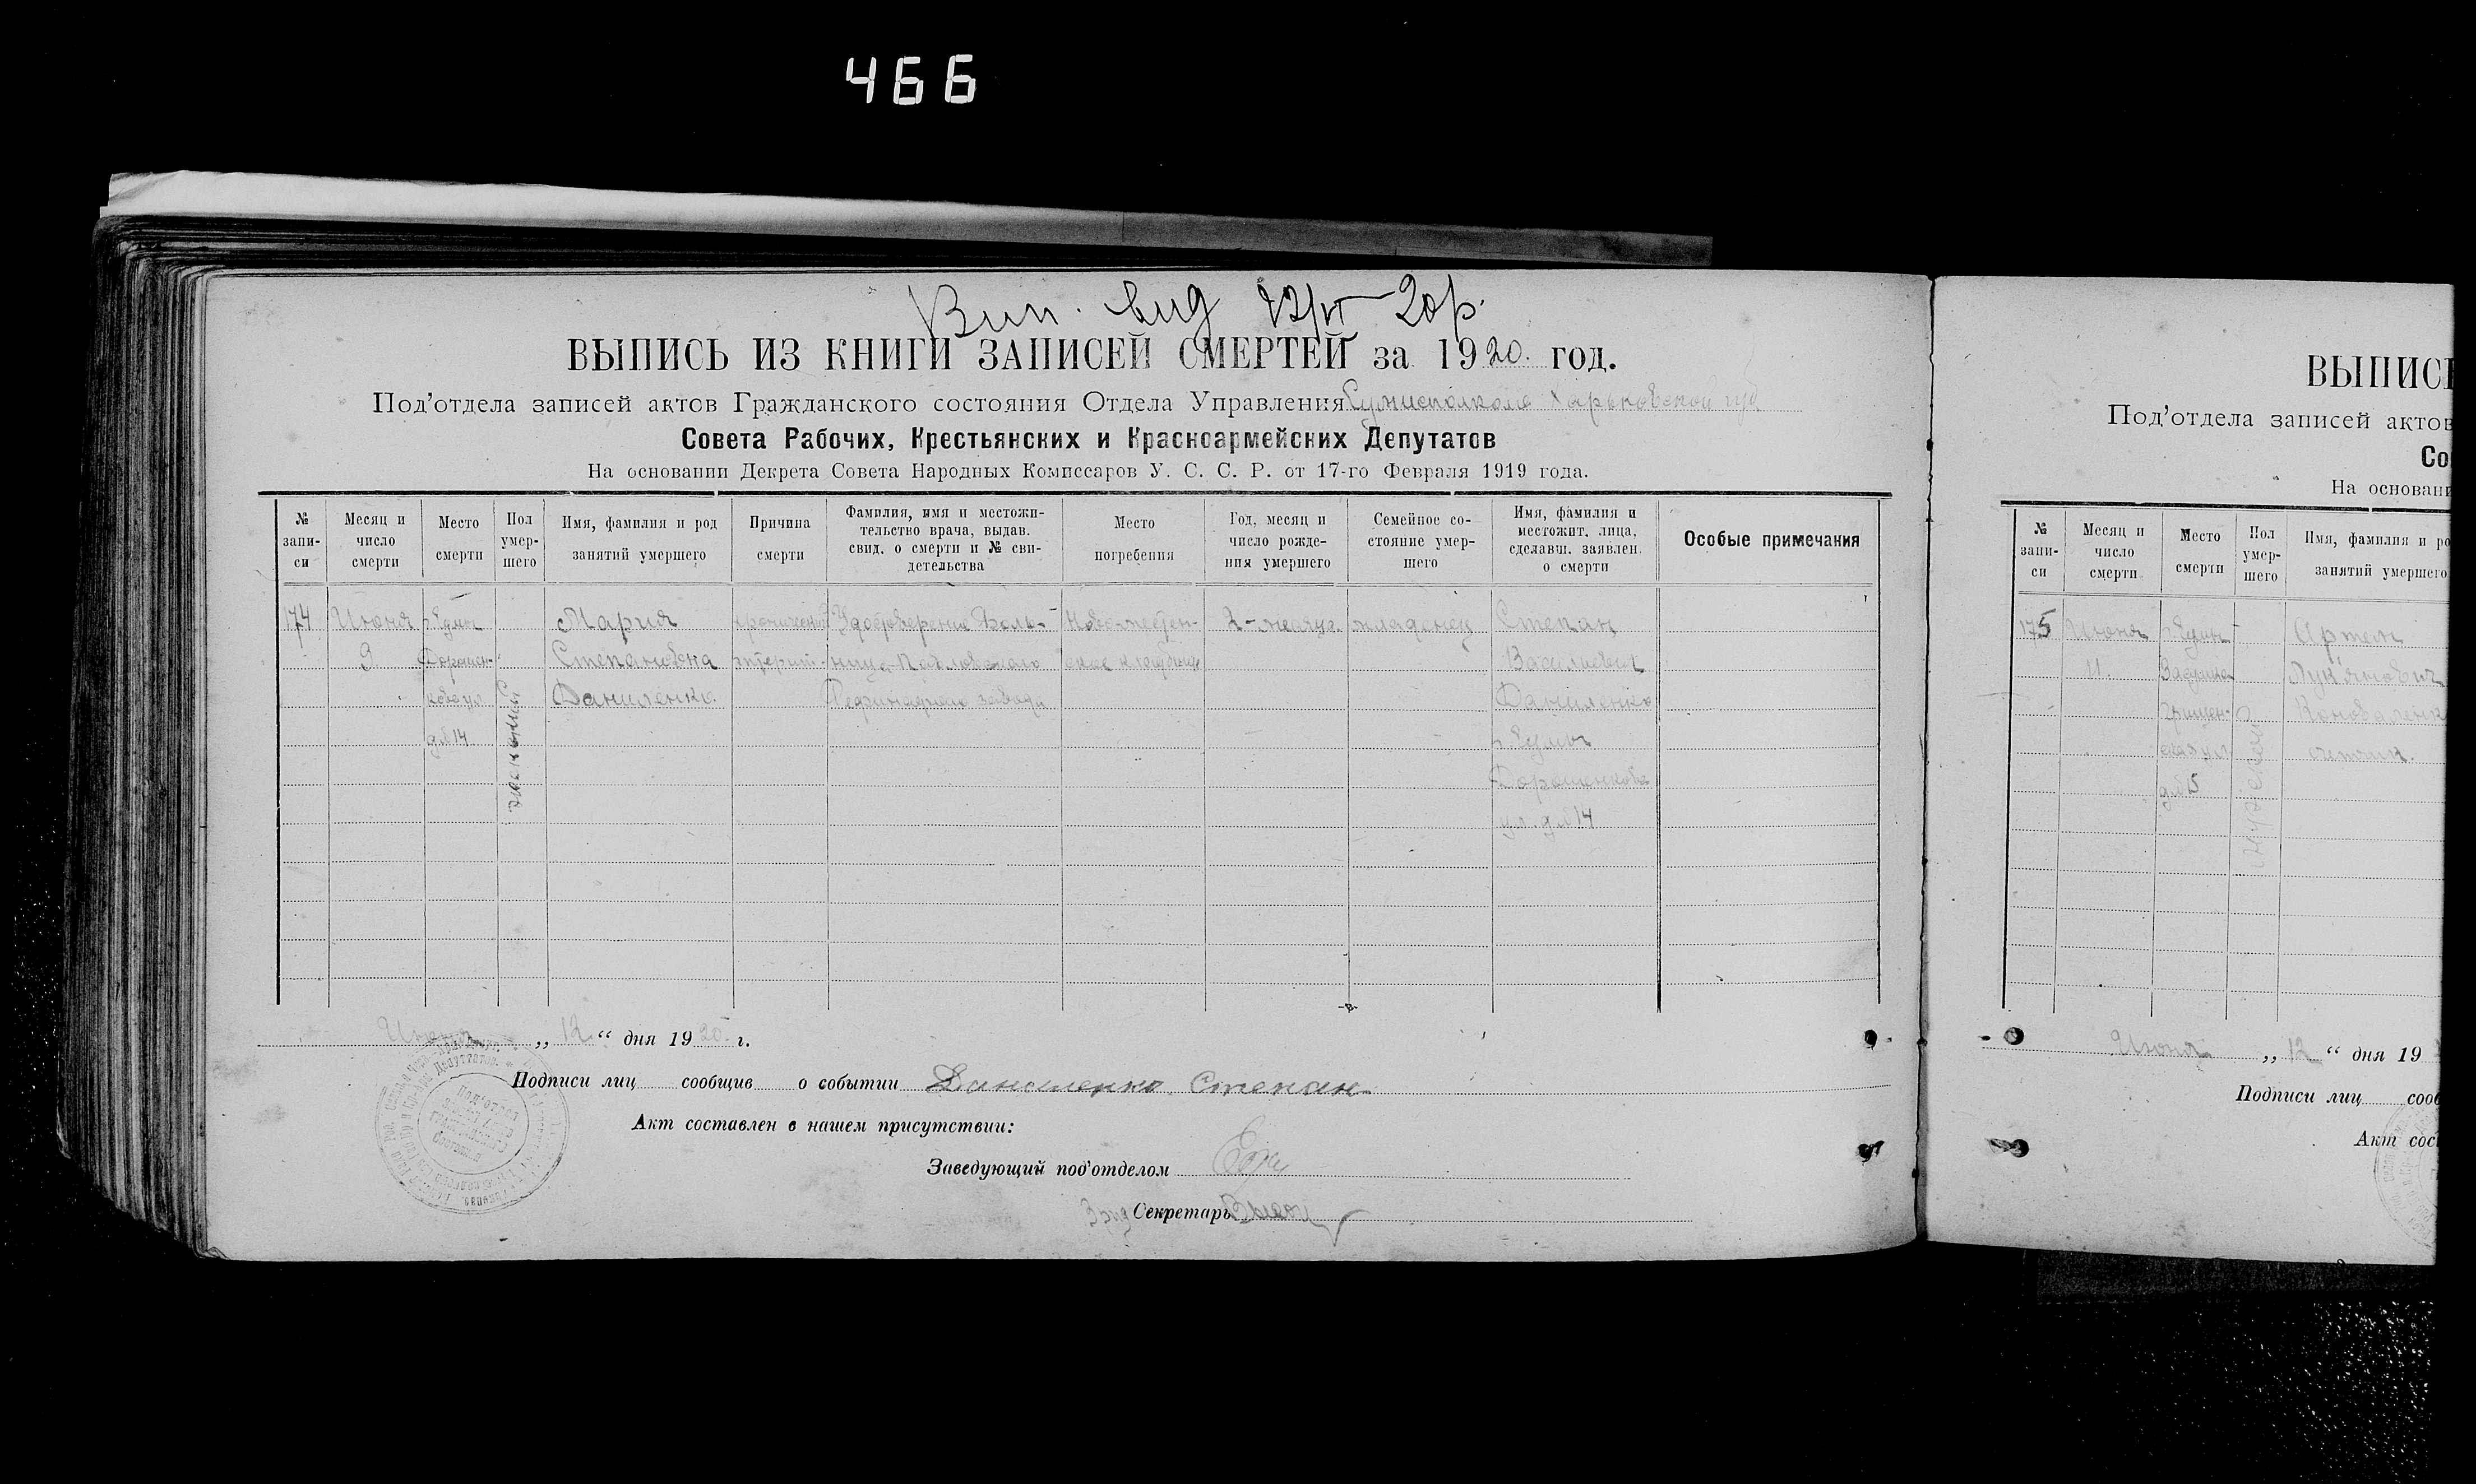 466
Вип. вид 12/VI 20р.
ВЫПИСЬ ИЗ КНИГИ ЗАПИСЕЙ СМЕРТЕЙ за 1920. год.
Под'отдела записей актов Гражданского состояния Отдела Управления Харьковской губ
Совета Рабочих, Крестьянских и Красноармейских Депутатов
На основании Декрета Совета Народных Комиссаров У. С. С. Р. от 17-го Февраля 1919 года.
№ запи-си
Месяц и число смерти
Место смерти
Пол умер-шего
Имя, фамилия и род занятий умершего
Причина смерти
Фамилия, имя и местожи-тельство врача, выдав. свид. о смерти и № сви-детельства
Место погребения
Год, месяц и число рожде-ния умершего
Семейное со-стояние умер-шего
Имя, фамилия и местожит. лица, сделавш. заявлен. о смерти
Особые примечания
174
Июня
9
г. Сумы
Дорошен-
кова ул
д № 14
женский
Мария
Степановна
Даниленко.
Удостоверение Боль-
ница Павловского
Рафинадного завода
2-месяца.
младенец
Степан
Васильевич
Даниленко
г. Сумы
Дорошенкова
ул. д № 14
Июня „ 12 “ дня 1920 г.
Подписи лиц сообщив о событии Даниленко Степан
Акт составлен в нашем присутствии:
Заведующий под'отделом
Секретарь
ВЫПИСЬ
Под'отдела записей актов
Со
На основани
№ запи-си
Месяц и число смерти
Место смерти
Пол умер-шего
Имя, фамилия и ро
занятий умершего
175
Июня
11.
г. Сумы
ул
д № 15
мужской
Артем
Лук'янович
Коновален
Июня „ 12 “ дня 19
Подписи лиц сооб
Акт сос